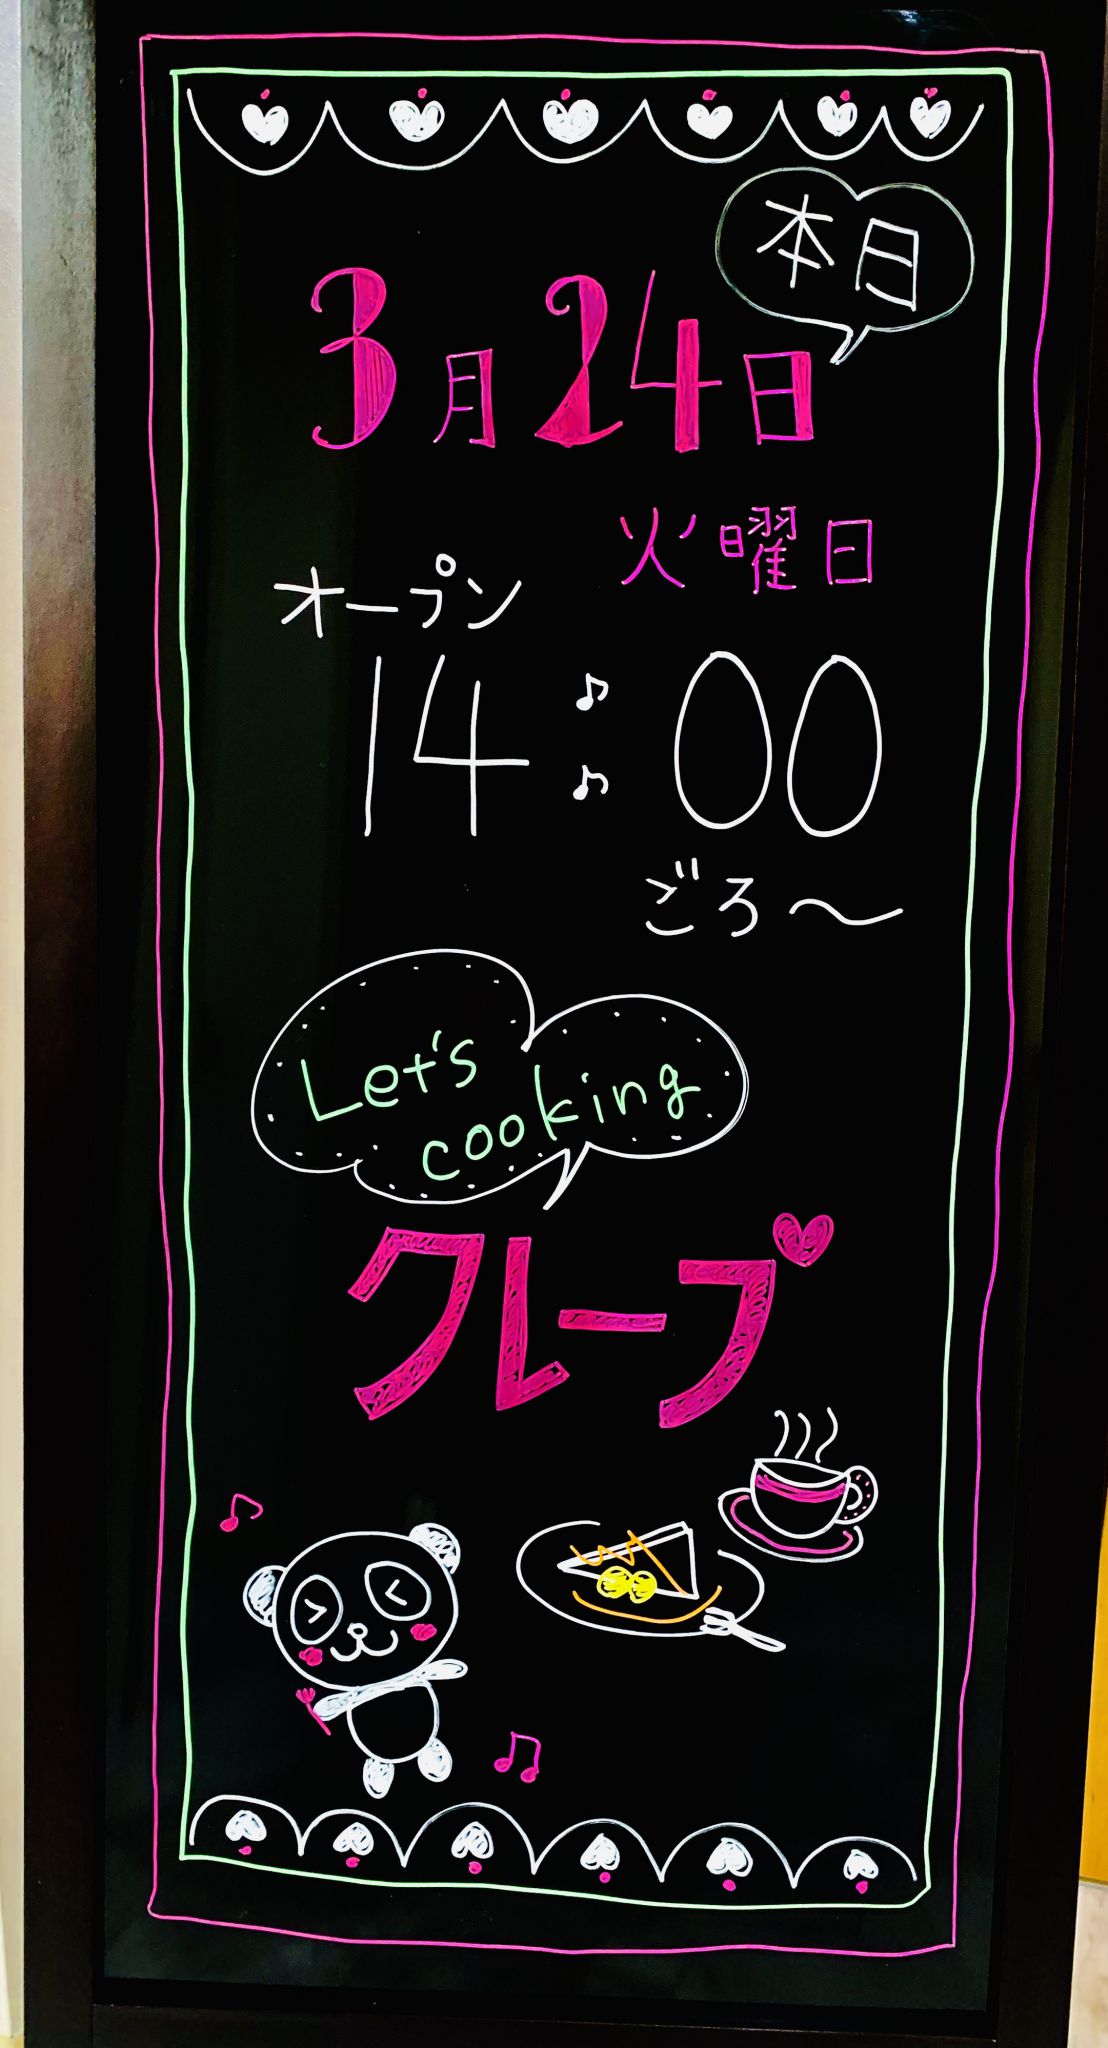 本日
3月24日
火曜日
オープン
14:00
ごろ〜
Let's
cooking
クレープ